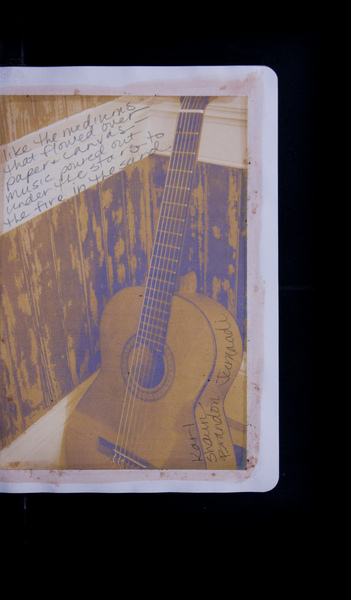 like the mediums
that flowed over
paper + canvas
music poured out
under the stars to
the fire in the sand.
Karl
Shaun
Brandon Jermaadi